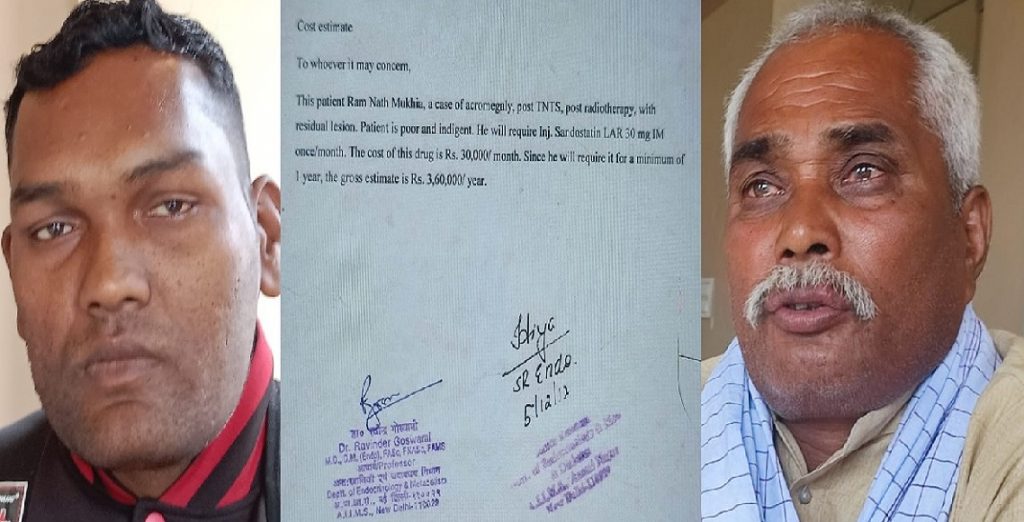 Cost estimate
To whoever it may concern,
This patient Ram Nath Mukhia, a case of acromeguly, post TNTS, post radiotherapy, with
residual lesion. Patient is poor and indigent. He will require Inj. Sardostatin LAR 30 mg IM
once/month. The cost of this drug is Rs. 30,000/ month. Since he will require it for a minimum of
1 year, the gross estimate is Rs. 3,60,000/ year.
SR Endo.
5/12/12
Dr. Ravinder Goswami
M.D., D.M. (Endo), FASc, FNASc, FAMS
आचार्य/Professor
Deptt. of Endocrinology & Metabolism
A.I.I.M.S., New Delhi-110029